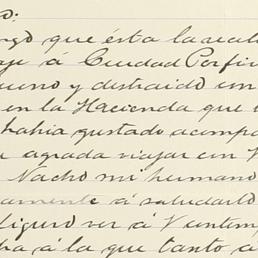 o:
ongo que ésta la recib
aje á Ciudad Porfir
ueno y distraido un
en la Hacienda que
habia gustado acompa
a agrada viajar con V
Nacho mi humano
amente á saludarlo
figuro ver á V untemp
ha á la que tanto a